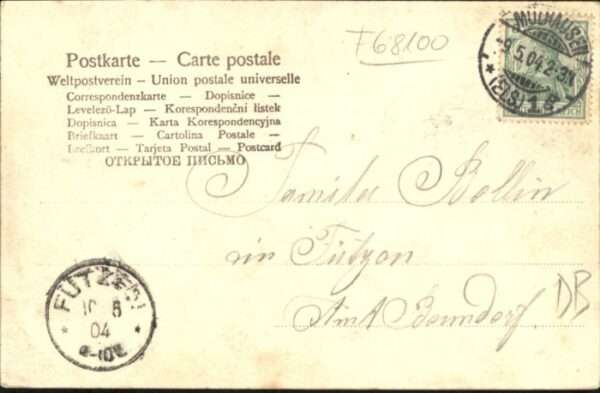 Postkarte — Carte postale
Weltpostverein – Union postale universelle
Correspondenzkarte — Dopisnice —
Levelező-Lap — Korespondenční lístek
Dopisnica — Karta Korespondencyjna
Briefkaart — Cartolina Postale —
Brefkort — Tarjeta Postal — Postcard
ОТКРЫТОЕ ПИСЬМО
F68100
MÜLHAUSEN
9.5.04.2-3N
* (ELS) 1 s
Familie Bollin
in Fützen
Amt Bonndorf.
DB
FÜTZEN
10 5
04